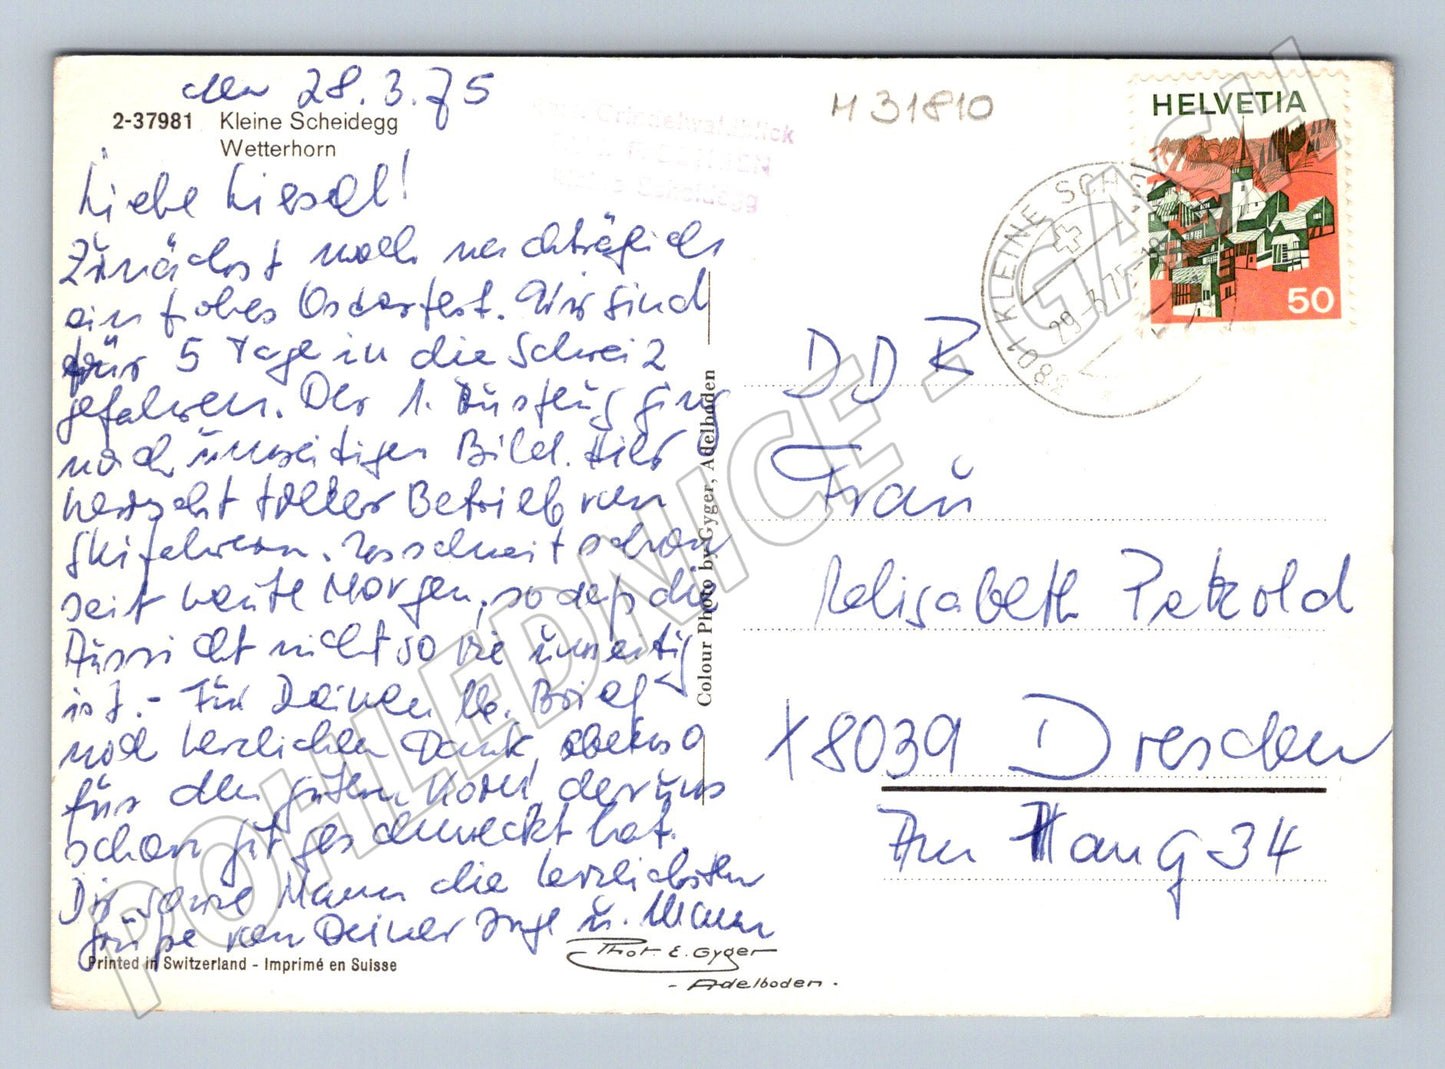 den 28.3.75
2-37981 Kleine Scheidegg
Wetterhorn
Liebe Liesel!
Zunächst noch nachträglich
ein frohes Osterfest. Wir sind
für 5 Tage in die Schweiz
gefahren. Der 1. Ausflug ging
nach umseitigen Bild. Hier
herrscht toller Betrieb von
Skifahrern. Es schneit schon
seit heute Morgen, so daß die
Aussicht nicht so wie umseitig
ist. - Für Deinen lb. Brief
noch herzlichen Dank, ebenso
für den guten
schon gut geschmeckt hat.
Dir sowie Mann die herzlichsten
Grüße von Deiner Inge u. Mann
Printed in Switzerland - Imprimé en Suisse
Phot. E. Gyger
- Adelboden -
Colour Photo by Gyger, Adelboden
Grindelwaldblick
Kleine Scheidegg
M 31810
HELVETIA
50
3801 KLEINE SCH
DDR
Frau
Elisabeth Petzold
X8039 Dresden
Am Hang 34
POHLEDNICE - GASH